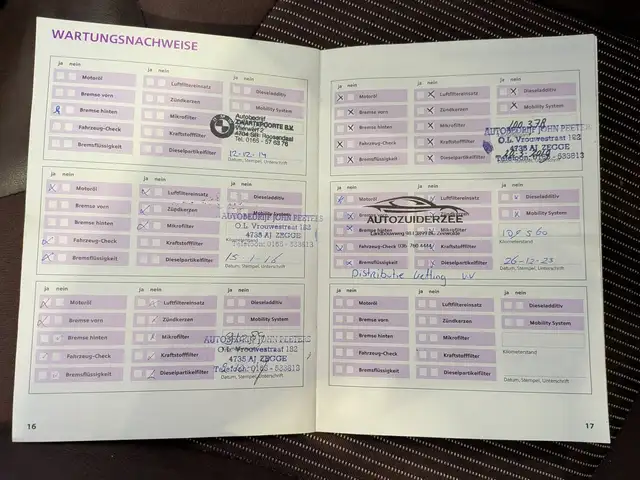 WARTUNGSNACHWEISE
ja nein ja nein ja nein
Motoröl Luftfiltereinsatz Dieseladditiv
Bremse vorn Zündkerzen Mobility System
Bremse hinten Mikrofilter
Fahrzeug-Check Kraftstofffilter
Bremsflüssigkeit Dieselpartikelfilter
Autobedrijf
ZWARTEPOORTE B.V.
12-12-14
Datum, Stempel, Unterschrift
ja nein ja nein ja nein
Motoröl Luftfiltereinsatz Dieseladditiv
Bremse vorn Zündkerzen Mobility System
Bremse hinten Mikrofilter
Fahrzeug-Check Kraftstofffilter
Bremsflüssigkeit Dieselpartikelfilter
AUTOBEDRIJF JOHN PEETERS
O.L. Vrouwestraat 182
4735 AJ ZEGGE
Telefoon: 0165 - 533613
15-1-16
Datum, Stempel, Unterschrift
ja nein ja nein ja nein
Motoröl Luftfiltereinsatz Dieseladditiv
Bremse vorn Zündkerzen Mobility System
Bremse hinten Mikrofilter
Fahrzeug-Check Kraftstofffilter
Bremsflüssigkeit Dieselpartikelfilter
AUTOBEDRIJF JOHN PEETERS
O.L. Vrouwestraat 182
4735 AJ ZEGGE
Telefoon: 0165 - 533613
Datum, Stempel, Unterschrift
16
ja nein ja nein ja nein
Motoröl Luftfiltereinsatz Dieseladditiv
Bremse vorn Zündkerzen Mobility System
Bremse hinten Mikrofilter
Fahrzeug-Check Kraftstofffilter
Bremsflüssigkeit Dieselpartikelfilter
100.378
AUTOBEDRIJF JOHN PEETERS
O.L. Vrouwestraat 182
4735 AJ ZEGGE
Telefoon: 0165 - 533613
ja nein ja nein ja nein
Motoröl Luftfiltereinsatz Dieseladditiv
Bremse vorn Zündkerzen Mobility System
Bremse hinten Mikrofilter
Fahrzeug-Check Kraftstofffilter
Bremsflüssigkeit Dieselpartikelfilter
AUTOZUIDERZEE
Kilometerstand
26-12-23
Datum, Stempel, Unterschrift
Distributie ketting
ja nein ja nein ja nein
Motoröl Luftfiltereinsatz Dieseladditiv
Bremse vorn Zündkerzen Mobility System
Bremse hinten Mikrofilter
Fahrzeug-Check Kraftstofffilter
Bremsflüssigkeit Dieselpartikelfilter
Kilometerstand
Datum, Stempel, Unterschrift
17